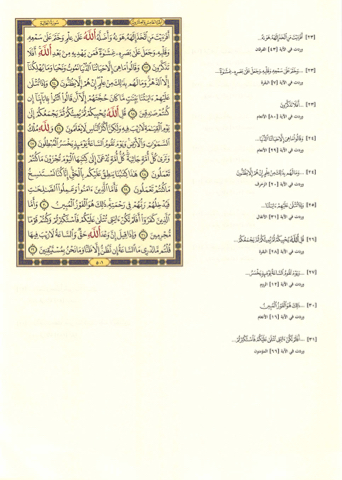 الجزء الخامس والعشرون
سورة الجاثية
أَفَرَءَيْتَ مَنِ ٱتَّخَذَ إِلَٰهَهُۥ هَوَىٰهُ وَأَضَلَّهُ ٱللَّهُ عَلَىٰ عِلْمٍ وَخَتَمَ عَلَىٰ سَمْعِهِۦ
وَقَلْبِهِۦ وَجَعَلَ عَلَىٰ بَصَرِهِۦ غِشَٰوَةً فَمَن يَهْدِيهِ مِنۢ بَعْدِ ٱللَّهِ أَفَلَا
تَذَكَّرُونَ ٢٣ وَقَالُوا۟ مَا هِىَ إِلَّا حَيَاتُنَا ٱلدُّنْيَا نَمُوتُ وَنَحْيَا وَمَا يُهْلِكُنَآ
إِلَّا ٱلدَّهْرُ وَمَا لَهُم بِذَٰلِكَ مِنْ عِلْمٍ إِنْ هُمْ إِلَّا يَظُنُّونَ ٢٤ وَإِذَا تُتْلَىٰ
عَلَيْهِمْ ءَايَٰتُنَا بَيِّنَٰتٍ مَّا كَانَ حُجَّتَهُمْ إِلَّآ أَن قَالُوا۟ ٱئْتُوا۟ بِـَٔابَآئِنَآ إِن
كُنتُمْ صَٰدِقِينَ ٢٥ قُلِ ٱللَّهُ يُحْيِيكُمْ ثُمَّ يُمِيتُكُمْ ثُمَّ يَجْمَعُكُمْ إِلَىٰ
يَوْمِ ٱلْقِيَٰمَةِ لَا رَيْبَ فِيهِ وَلَٰكِنَّ أَكْثَرَ ٱلنَّاسِ لَا يَعْلَمُونَ ٢٦ وَلِلَّهِ مُلْكُ
ٱلسَّمَٰوَٰتِ وَٱلْأَرْضِ وَيَوْمَ تَقُومُ ٱلسَّاعَةُ يَوْمَئِذٍ يَخْسَرُ ٱلْمُبْطِلُونَ ٢٧
وَتَرَىٰ كُلَّ أُمَّةٍ جَاثِيَةً كُلُّ أُمَّةٍ تُدْعَىٰٓ إِلَىٰ كِتَٰبِهَا ٱلْيَوْمَ تُجْزَوْنَ مَا كُنتُمْ
تَعْمَلُونَ ٢٨ هَٰذَا كِتَٰبُنَا يَنطِقُ عَلَيْكُم بِٱلْحَقِّ إِنَّا كُنَّا نَسْتَنسِخُ
مَا كُنتُمْ تَعْمَلُونَ ٢٩ فَأَمَّا ٱلَّذِينَ ءَامَنُوا۟ وَعَمِلُوا۟ ٱلصَّٰلِحَٰتِ
فَيُدْخِلُهُمْ رَبُّهُمْ فِى رَحْمَتِهِۦ ذَٰلِكَ هُوَ ٱلْفَوْزُ ٱلْمُبِينُ ٣٠ وَأَمَّا
ٱلَّذِينَ كَفَرُوٓا۟ أَفَلَمْ تَكُنْ ءَايَٰتِى تُتْلَىٰ عَلَيْكُمْ فَٱسْتَكْبَرْتُمْ وَكُنتُمْ قَوْمًا
مُّجْرِمِينَ ٣١ وَإِذَا قِيلَ إِنَّ وَعْدَ ٱللَّهِ حَقٌّ وَٱلسَّاعَةُ لَا رَيْبَ فِيهَا
قُلْتُم مَّا نَدْرِى مَا ٱلسَّاعَةُ إِن نَّظُنُّ إِلَّا ظَنًّا وَمَا نَحْنُ بِمُسْتَيْقِنِينَ ٣٢
٥٠١
[٢٣] أَفَرَءَيْتَ مَنِ ٱتَّخَذَ إِلَٰهَهُۥ هَوَىٰهُ...
وردت في الآية [٤٣] الفرقان
[٢٣] ...وَخَتَمَ عَلَىٰ سَمْعِهِۦ وَقَلْبِهِۦ وَجَعَلَ عَلَىٰ بَصَرِهِۦ غِشَٰوَةً...
وردت في الآية [٧] البقرة
[٢٣] ...أَفَلَا تَذَكَّرُونَ
وردت في الآية [٨٠] الأنعام
[٢٤] ...مَا هِىَ إِلَّا حَيَاتُنَا ٱلدُّنْيَا...
وردت في الآية [٢٩] الأنعام
[٢٤] ...وَمَا لَهُم بِذَٰلِكَ مِنْ عِلْمٍ إِنْ هُمْ إِلَّا يَظُنُّونَ
وردت في الآية [٢٠] الزخرف
[٢٥] وَإِذَا تُتْلَىٰ عَلَيْهِمْ ءَايَٰتُنَا...
وردت في الآية [٣١] الأنفال
[٢٦] قُلِ ٱللَّهُ يُحْيِيكُمْ ثُمَّ يُمِيتُكُمْ ثُمَّ يَجْمَعُكُمْ...
وردت في الآية [٢٨] البقرة
[٢٧] ...وَيَوْمَ تَقُومُ ٱلسَّاعَةُ يَوْمَئِذٍ يَخْسَرُ...
وردت في الآية [١٢] الروم
[٣٠] ...ذَٰلِكَ هُوَ ٱلْفَوْزُ ٱلْمُبِينُ
وردت في الآية [١٦] الأنعام
[٣١] ...أَفَلَمْ تَكُنْ ءَايَٰتِى تُتْلَىٰ عَلَيْكُمْ فَٱسْتَكْبَرْتُمْ...
وردت في الآية [٦٦] المؤمنون